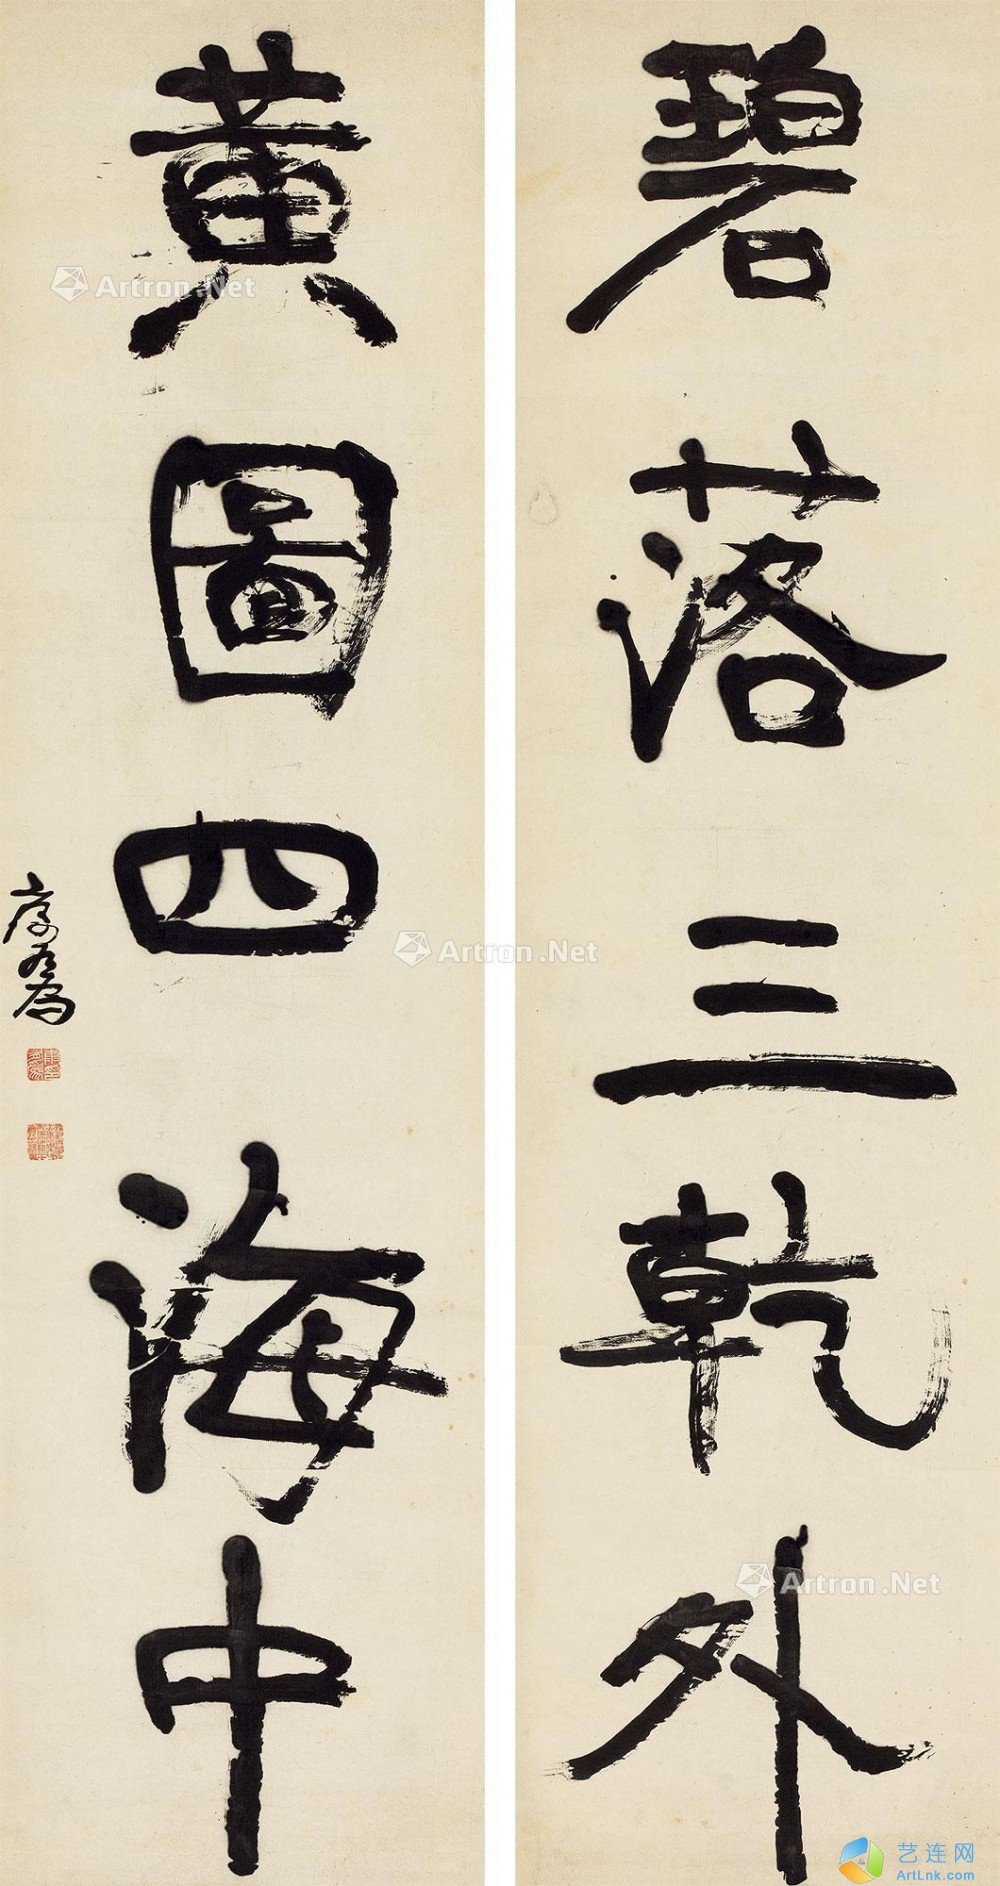 碧落三乾外
黃圖四海中
康有為
Artron.Net
Artron.Net
Artron.Net
艺连网
ArtLnk.com